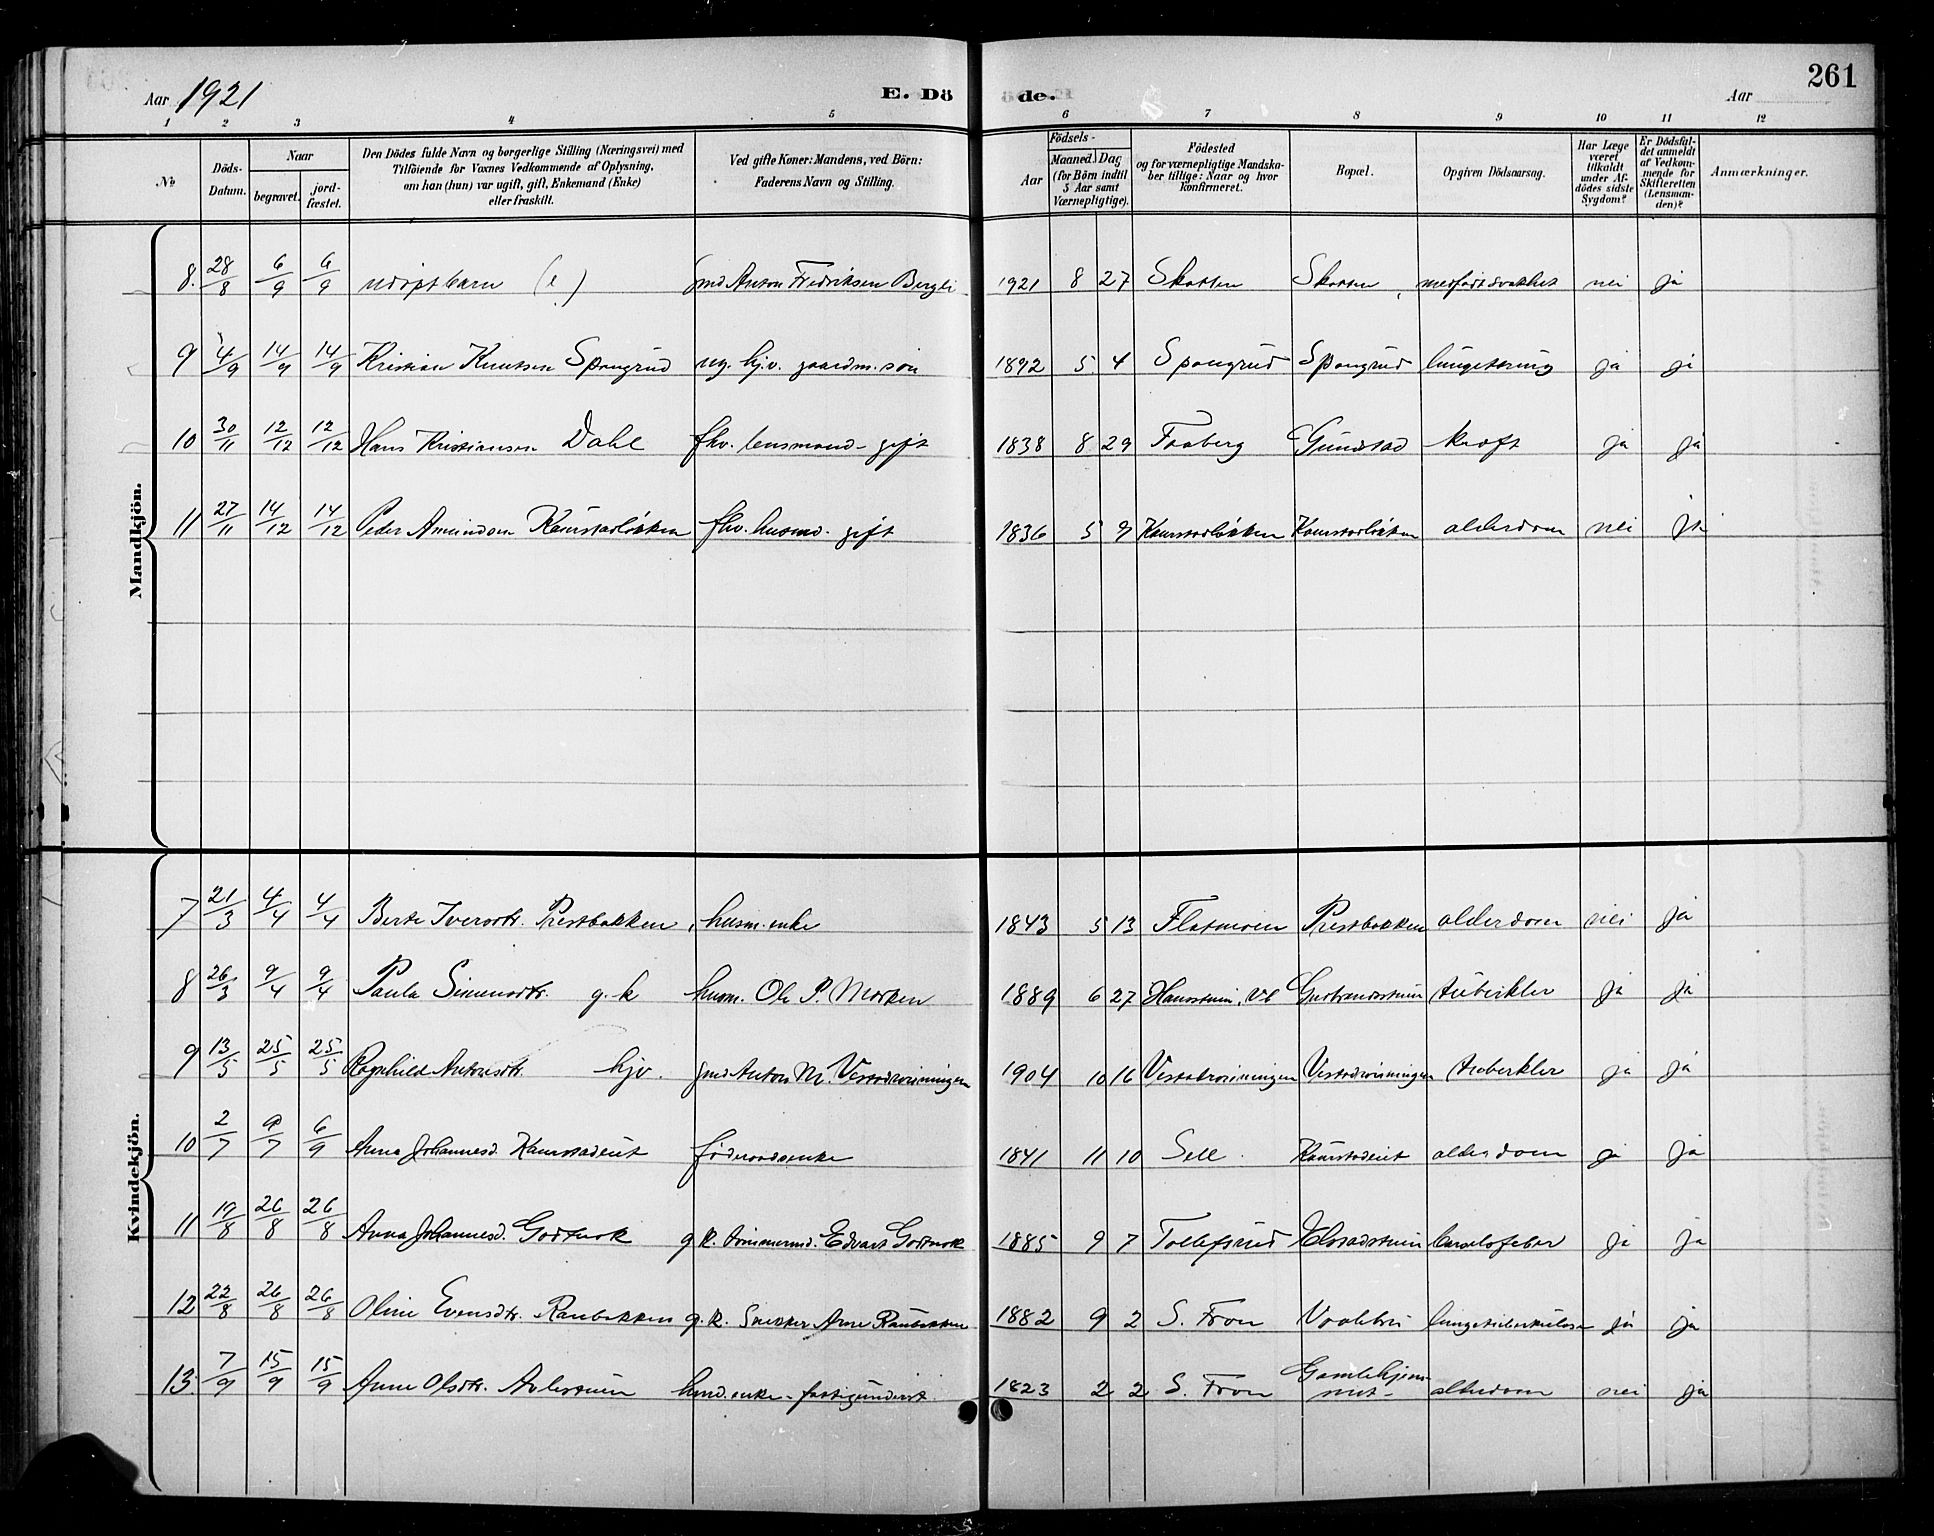 Aar 1921 E. Dö de. Aar 261
1 2 3 4 5 6 7 8 9 10 11 12
№ Döds-Datum. Naar begravet. jordfæstet. Den Dödes fulde Navn og borgerlige Stilling (Næringsvei) med Tilföiende for Voxnes Vedkommende af Oplysning, om han (hun) var ugift, gift, Enkemand (Enke) eller fraskilt. Ved gifte Koner: Mandens, ved Börn: Faderens Navn og Stilling. Födsels- Aar Maaned. Dag (for Börn indtil 5 Aar samt Værnepligtige). Födested og for værnepligtige Mandskaber tillige: Naar og hvor konfirmeret. Bopæl. Opgiven Dödsaarsag. Har Læge været tilkaldt under Afdödes sidste Sygdom? Er Dödsfaldet anmeldt af Vedkommende for Skifteretten (Lensmanden)? Anmærkninger.
Mandkjön.
8. 28/8 6/9 6/9 udøpt barn (e) gmd Anton Fredriksen Bergli 1921 8 27 Skotten Skotten medfødt svakhet nei ja
9 4/9 14/9 14/9 Kristian Knutsen Spangrud ug. hjv. gaardm. søn 1892 5 4 Spangrud Spangrud lungetæring ja ja
10 30/11 12/12 12/12 Hans Kristiansen Dahl fhv. lensmand - gift 1838 8 29 Faaberg Gunstad kræft ja ja
11 27/11 14/12 14/12 Peder Amundsen Kaurstadløkken fhv. husmd. gift 1836 5 9 Kaurstadløkken Kaurstadløkken alderdom nei ja
Kvindekjön.
7 21/3 4/4 4/4 Berte Iversdtr. Prestbakken, husm. enke 1843 5 13 Flatmoen Prestbakken alderdom nei ja
8 26/3 9/4 9/4 Paula Simensdtr. g. k husm. Ole P. Morken 1889 6 27 Gudbrandsstuen tuberkler ja ja
9 13/5 25/5 25/5 Ragnhild Antonsdtr. hjv. gmd Anton M. 1904 10 16 tuberkler ja ja
10 2/7 9/7 6/9 Anna Johannesd. Kaurstadeiet føderaadsenke 1841 11 10 Sell. Kaurstadeiet alderdom ja ja
11 19/8 26/8 26/8 Anna Johannesd. Godtnok g k. tømmermd. Edvart Godtnok 1885 9 7 Tollefsrud barselsfeber ja ja
12 22/8 26/8 26/8 Oline Evensdtr. Raubakken g. k. Snekker Arne Raubakken 1882 9 2 S. Fron lungetuberkulose ja ja
13 7/9 15/9 15/9 Anne Olsdtr. husmd. enke - fattigunderst. 1823 2 2 S. Fron Gamlehjemmet - alderdom nei ja